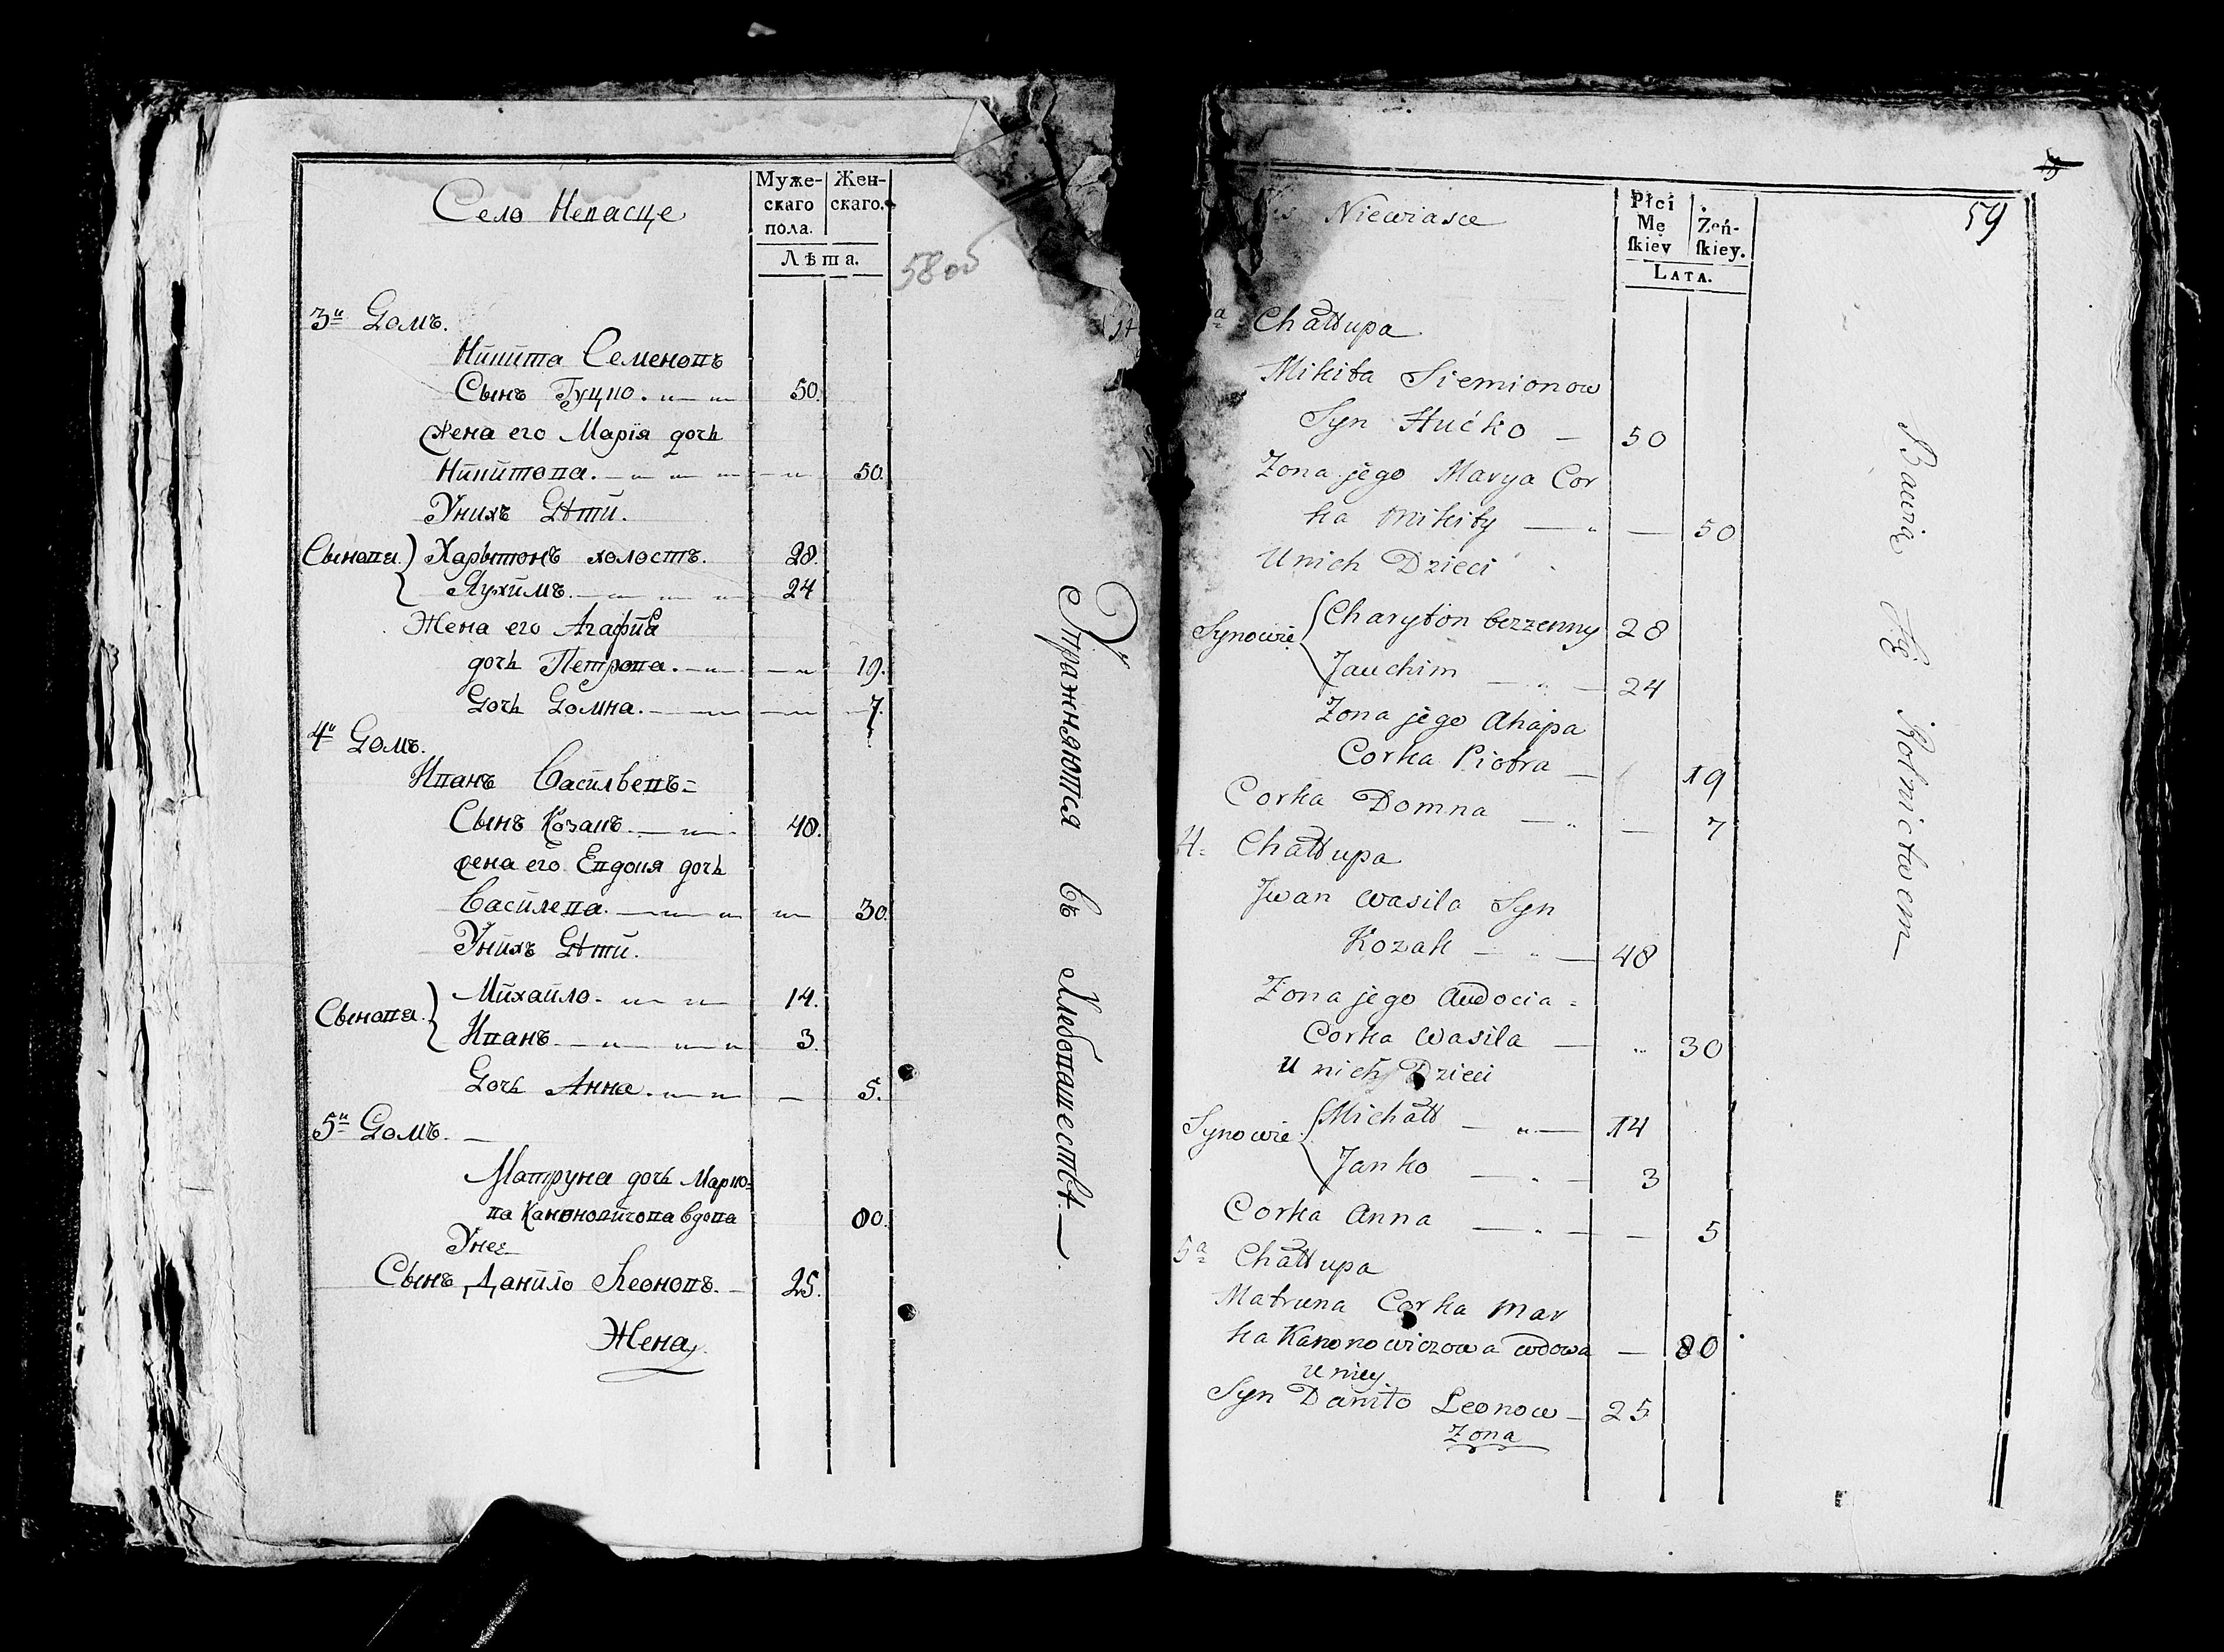 Село Невасце
Муже-
скаго
пола.
Жен-
скаго.
Лѣта.
58 об
3й Домъ.
Никита Семеновъ
Сынъ Гуцко. 50.
Жена его Марїя дочь
Никитова. 50.
Унихъ Дѣти.
Сыновя Харытонъ холостъ. 28.
Яухимъ. 24
Жена его Агафия
дочь Петрова. 19.
Дочь Домна. 7.
4й Домъ.
Иванъ Василвевъ=
Сынъ Козакъ. 48.
жена его Евдокя дочь
Василева. 30.
Унихъ Дѣти.
Сыновя Михайло. 14.
Иванъ 3.
Дочь Анна. 5.
5й Домъ.
Матруна дочь Марко=
ва Канановичова вдова 80.
Унее
Сынъ Данило Леоновъ. 25.
Жена
Упражняются въ Хлебопашествѣ.
59
Niewiasce
Płci
Mę
ſkiey
Żeń-
ſkiey.
LATA.
Chałłupa
Mikita Siemionow
Syn Hućko — 50
Zona jego Marya Cor
ka Mikity — 50
Unich Dzieci
Synowie Charyton bezzenny 28
Jauchim 24
Zona jego Ahapa
Corka Piotra — 19
Corka Domna — 7
4. Chałłupa
Jwan Wasila Syn
Kozak — 48
Zona jego Audocia =
Corka Wasila — 30
U nich Dzieci
Synowie Michałł — 14
Janko — 3
Corka Anna — 5
5a Chałłupa
Matruna Corka Mar
ka Kanonowiczowa wdowa — 80
U niey
Syn Daniło Leonow — 25
Zona
Bawią Się Rolnictwem